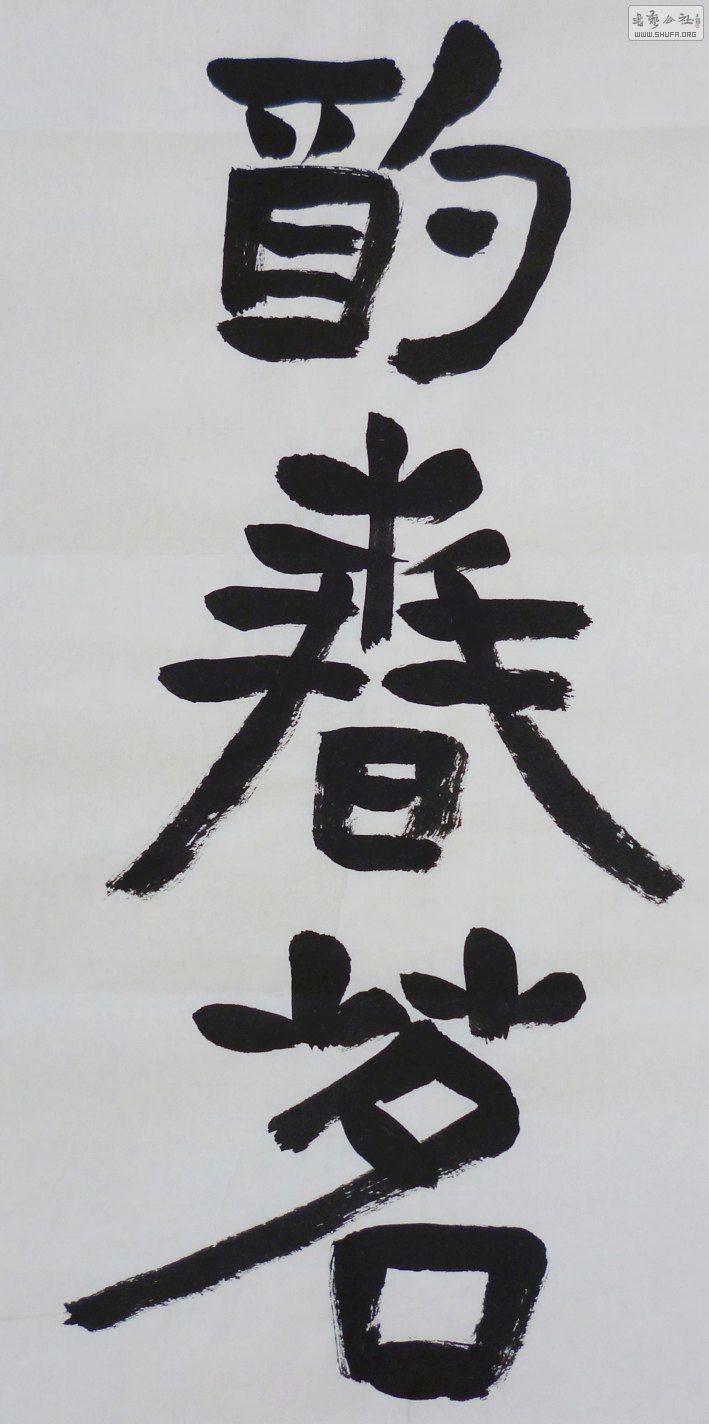 书艺公社
WWW.SHUFA.ORG
酌
春
茗